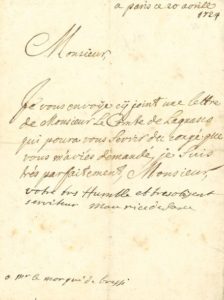 a paris ce 20 avrill
1724
Monsieur,
Je vous envoye cy joint une lettre
de Monsieur le Comte de
qui poura vous servir du congé que
vous m'aviés demandé, je suis
trés parfaitement, Monsieur,
votre tres humble et tres obeissent
serviteur Maurice de Saxe
a mr le marquis de